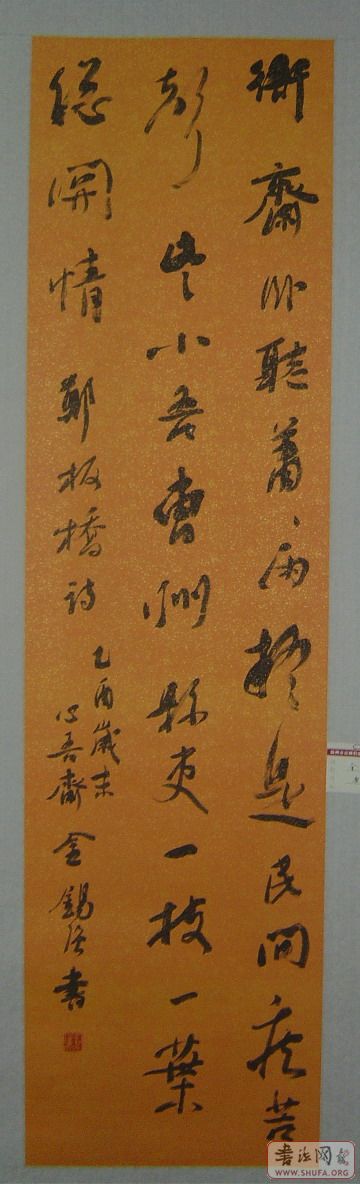 衙齋卧聽蕭〻雨疑是民間疾苦
聲些小吾曹州縣吏一枝一葉
總關情 鄭板橋詩 乙酉歲末
心吾齋 金錫書
書法网
WWW.SHUFA.ORG